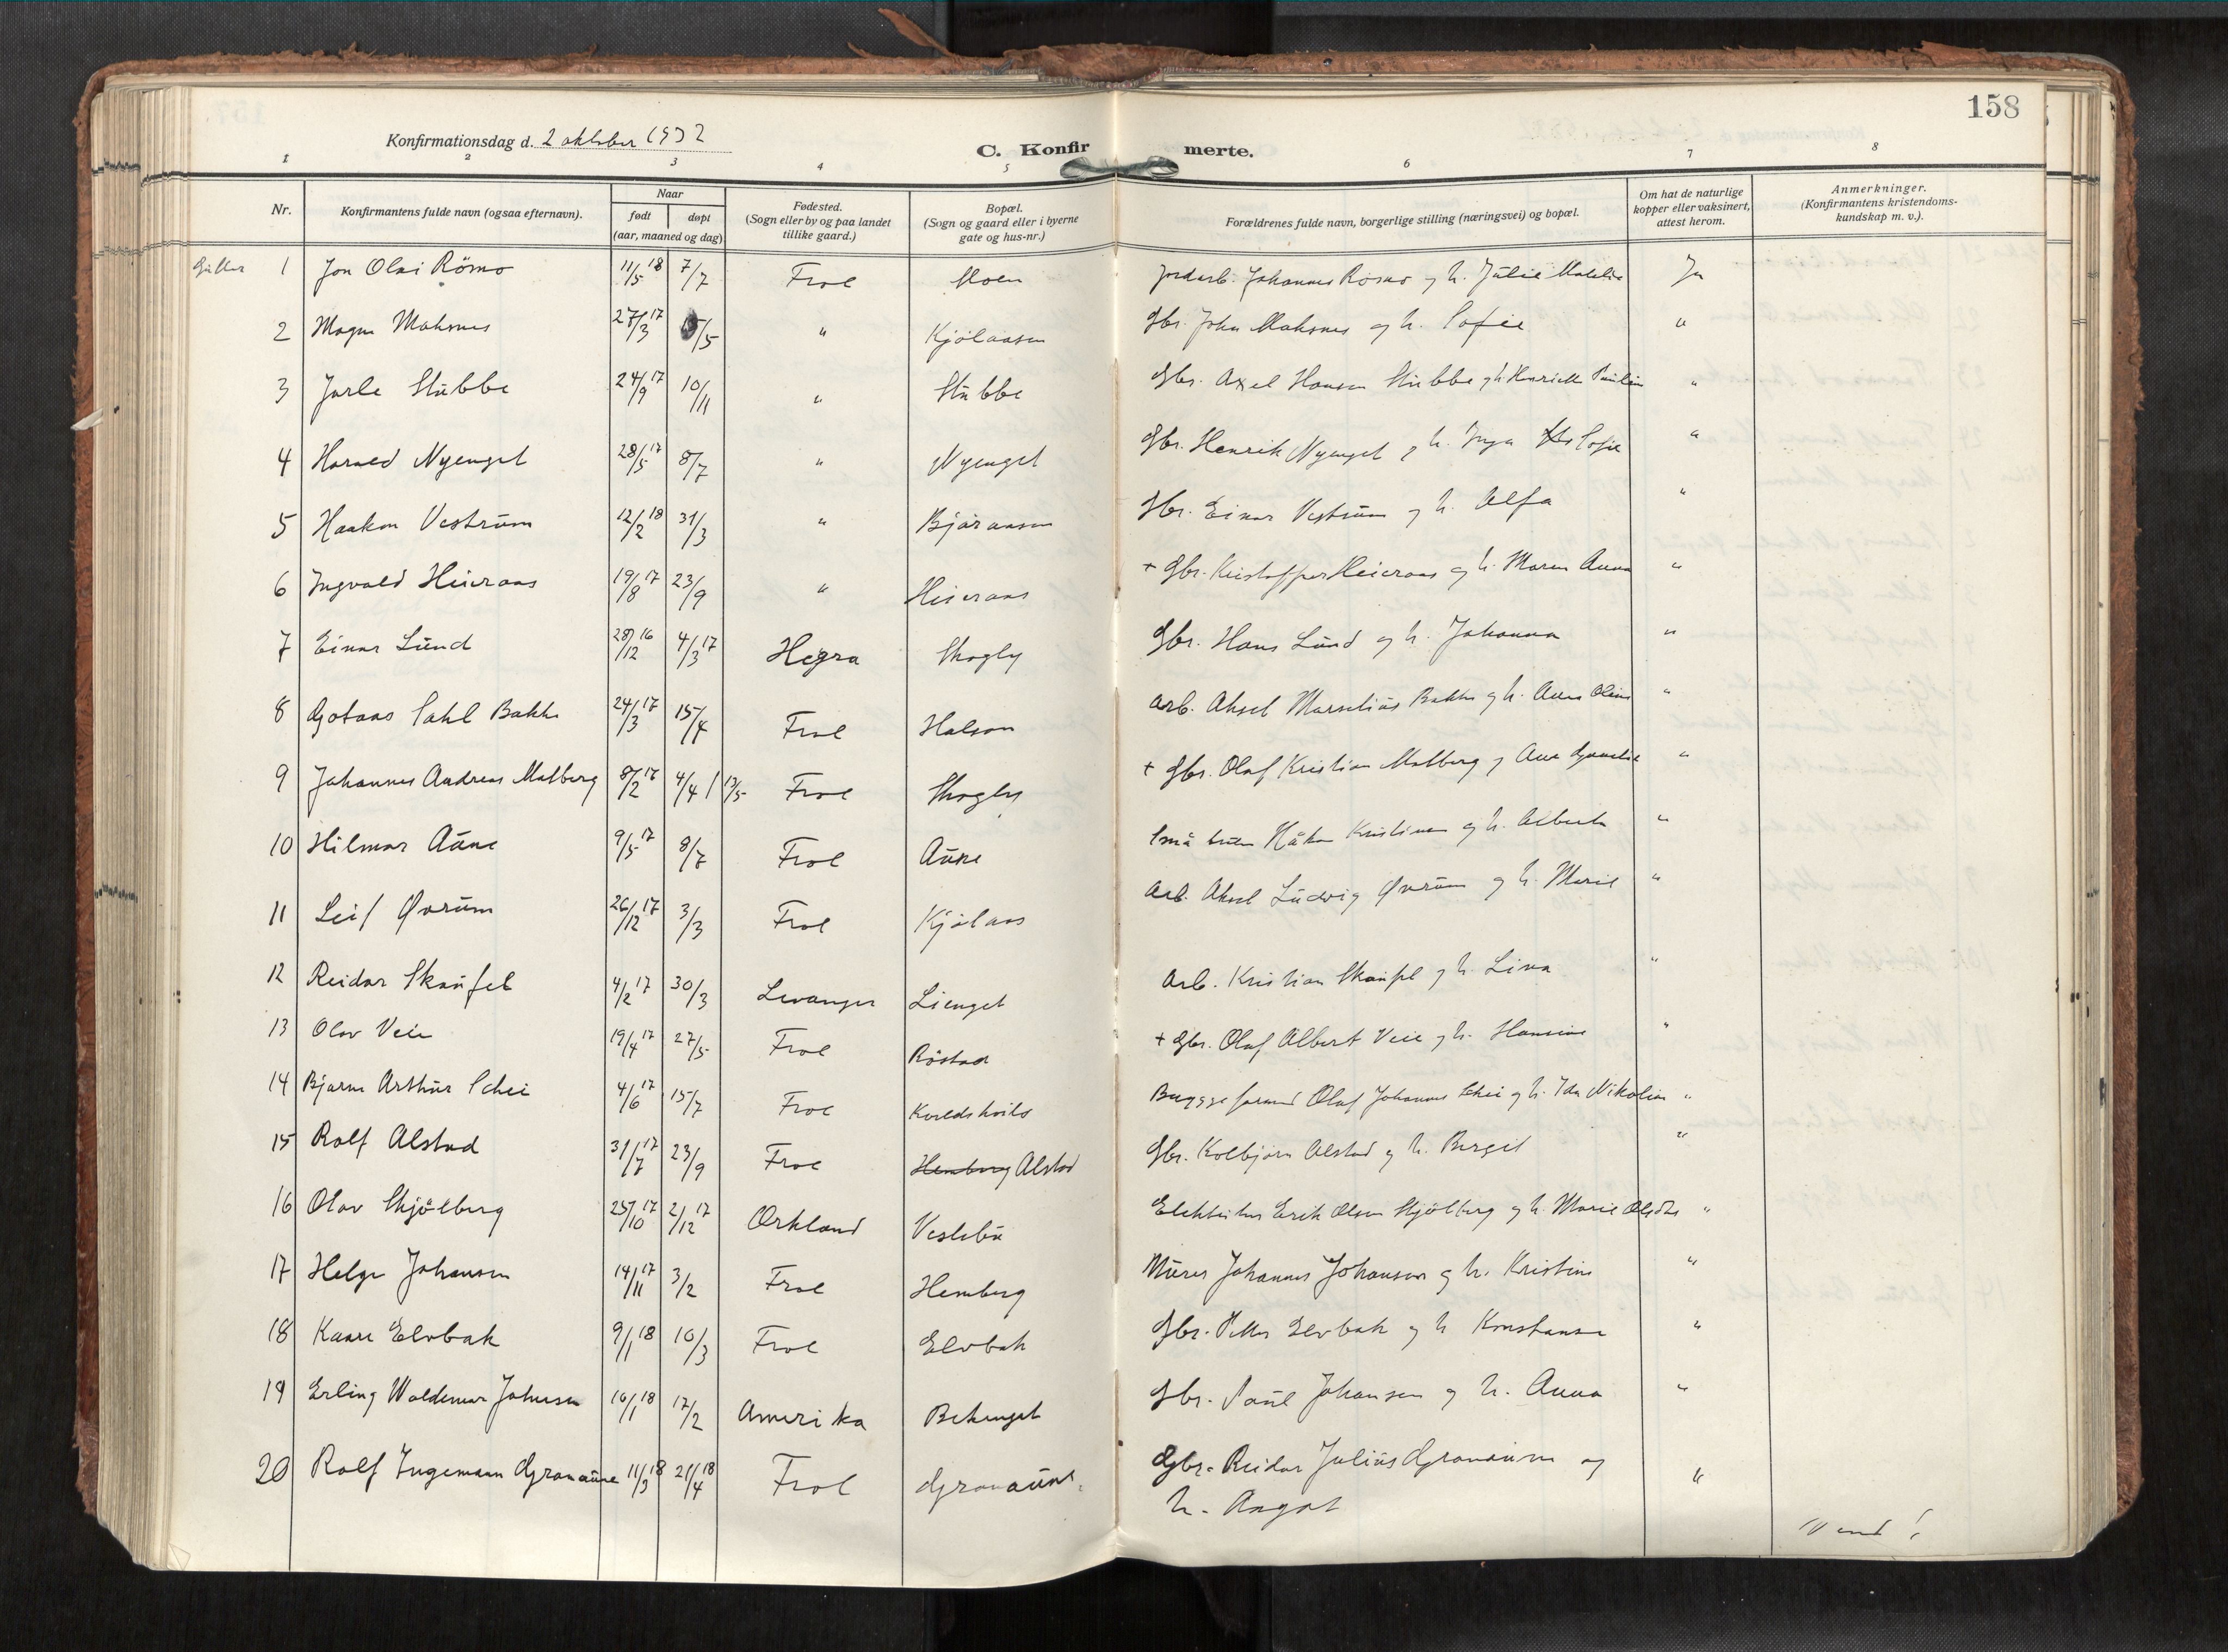 158
Konfirmationsdag d. 2 oktober 1932
C. Konfirmerte.
1 2 3 4 5 6 7 8
Nr.
Konfirmantens fulde navn (ogsaa efternavn).
Naar
født
døpt
(aar, maaned og dag)
Fødested.
(Sogn eller by og paa landet
tillike gaard.)
Bopæl.
(Sogn og gaard eller i byerne
gate og hus-nr.)
Forældrenes fulde navn, borgerlige stilling (næringsvei) og bopæl.
Om hat de naturlige
kopper eller vaksinert,
attest herom.
Anmerkninger.
(Konfirmantens kristendoms-
kundskap m. v.).
Gutter 1 Jon Olai Römo 11/5 18 7/7 Frol Moen Jordarb. Johannes Römo og h. Julie Ja
2 Magne Moksnes 27/3 17 /5 " Kjölaasen Gbr. John Moksnes og h. Sofie "
3 Jarle Stubbe 24/9 17 10/11 " Stubbe Gbr. Axel Hansen Stubbe og h. "
4 Harald Nyenget 28/5 17 8/7 " Nyenget Gbr. Henrik Nyenget og h. Inga Sofie "
5 Haakon Vestrum 12/2 18 31/3 " Gbr. Einar Vestrum og h. Alfa "
6 Ingvald Heieraas 19/8 17 23/9 " Heieraas + Gbr. Kristoffer Heieraas og h. Maren Anna "
7 Einar Lund 28/12 16 4/3 17 Hegra Skogly Gbr. Hans Lund og h. Johanna "
8 Bakke 24/3 17 15/4 Frol Halsan Arb. Aksel Marselius Bakke og h. Anna "
9 Johannes Andreas Matberg 8/2 17 4/4 / 13/5 Frol Skogly + Gbr. Olaf Kristian Matberg og "
10 Hilmar Aune 9/5 17 8/7 Frol Aune Små Håkon og h. Alberte "
11 Leif Øvrum 26/12 17 3/3 Frol Kjölaas Arb. Aksel Ludvig Øvrum og h. Marie "
12 Reidar Skaufel 4/2 17 30/3 Levanger Lienget Arb. Kristian Skaufel og h. Lina "
13 Olav Veie 19/4 17 27/5 Frol Röstad + Gbr. Olaf Albert Veie og h. Hansine "
14 Bjarne Arthur Schei 4/6 17 15/7 Frol Kveldshvile Byggeformand Olaf Johannes Schei og h. Ida Nikoline "
15 Rolf Alstad 31/7 17 23/9 Frol Hemberg Alstad Gbr. Kolbjörn Alstad og h. Bergit "
16 Olav Skjölberg 25/10 17 2/12 17 Orkland Erik Olsen Skjölberg og h. Marie Olsdtr "
17 Helge Johansen 14/11 17 3/2 Frol Hemberg Murer Johannes Johansen og h. Kristine "
18 Kaare Elvbak 9/1 18 10/3 Frol Elvbak Gbr. Petter Elvbak og h Konstanse "
19 Erling Waldemar Johansen 10/1 18 17/2 Amerika Gbr. Paul Johansen og h. Anna "
20 Rolf Ingemann Granaune 11/3 18 21/4 18 Frol Granaune. Gbr. Reidar Julius Granaune og "
h. Aagot
Vend!